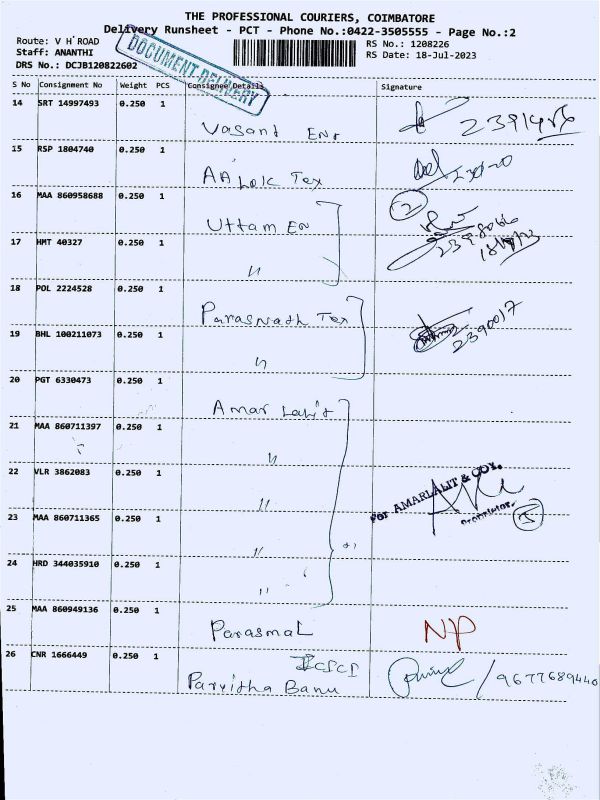 THE PROFESSIONAL COURIERS, COIMBATORE
Delivery Runsheet - PCT - Phone No.:0422-3505555 - Page No.:2
Route: V H ROAD
Staff: ANANTHI
DRS No.: DCJB120822602
DOCUMENT DELIVERY
RS No.: 1208226
RS Date: 18-Jul-2023
S No Consignment No Weight PCS Consignee Details Signature
14 SRT 14997493 0.250 1
Vasant Ent
15 RSP 1804740 0.250 1
AAlok Tex
16 MAA 860958688 0.250 1
Uttam En 2
17 HMT 40327 0.250 1
"
18 POL 2224528 0.250 1
Parasnath Tex 2390017
19 BHL 100211073 0.250 1
"
20 PGT 6330473 0.250 1
Amar Lalit
21 MAA 860711397 0.250 1
"
22 VLR 3862083 0.250 1
"
For AMARLALIT & COY.
Proprietor. 5
23 MAA 860711365 0.250 1
"
24 HRD 344035910 0.250 1
"
25 MAA 860949136 0.250 1
Parasmal NP
26 CNR 1666449 0.250 1
ICICI
Parvitha Banu / 9677689440